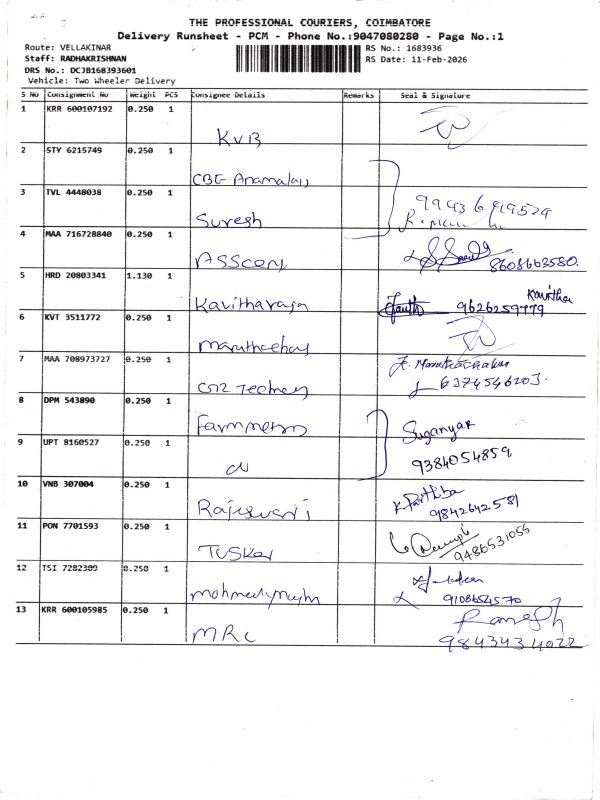 THE PROFESSIONAL COURIERS, COIMBATORE
Delivery Runsheet - PCM - Phone No.:9047080280 - Page No.:1
Route: VELLAKINAR
RS No.: 1683936
Staff: RADHAKRISHNAN
RS Date: 11-Feb-2026
DRS No.: DCJB168393601
Vehicle: Two Wheeler Delivery
S No Consignment No Weight PCS Consignee Details Remarks Seal & Signature
1 KRR 600107192 0.250 1
KVB
2 STY 6215749 0.250 1
CBE
3 TVL 4448038 0.250 1
Suresh
4 MAA 716728840 0.250 1
8608663580.
5 HRD 20803341 1.130 1
Kavitha
Kavitharaja 9626259779
6 KVT 3511772 0.250 1
7 MAA 708973727 0.250 1
6374546203.
8 DPM 543890 0.250 1
Suganyar
9 UPT 8160527 0.250 1
9384054859
10 VNB 307004 0.250 1
K Parthiba
Rajeswari 9842642581
11 PON 7701593 0.250 1
Tusker 9486531055
12 TSI 7282309 0.250 1
9108654570
13 KRR 600105985 0.250 1
Ramesh
MRC 9843434022